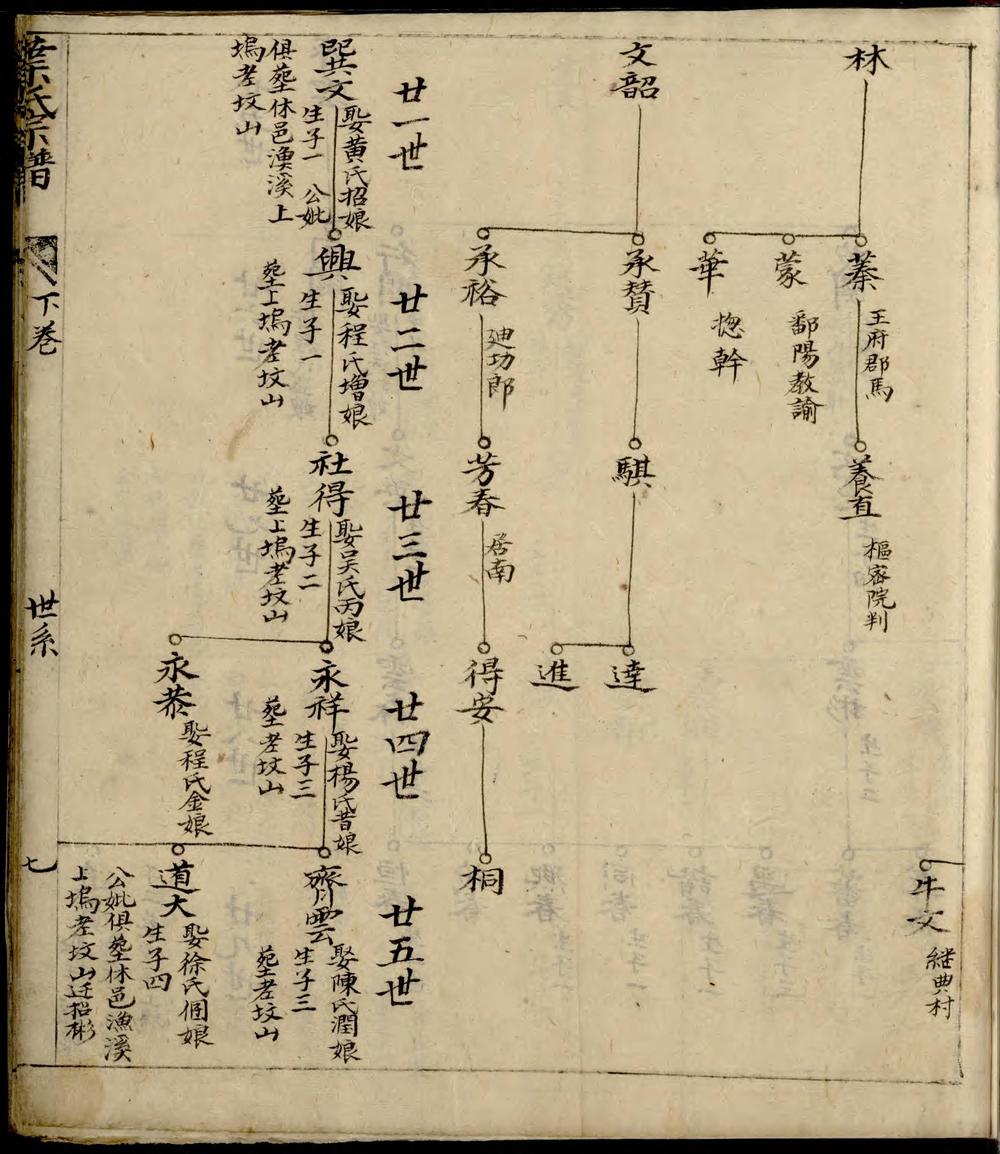 林
蓁
王府郡馬
養直
樞密院判
牛文
継典村
蒙
鄱陽教諭
華
揔幹
文韶
承賛
騏
達
進
承裕
廸功郎
芳春
居南
得安
桐
廿一世
廿二世
廿三世
廿四世
廿五世
文
娶黃氏招娘
生子一 公妣
俱塟休邑漁溪上
塢耂坟山
興
娶程氏增娘
生子一
塟上塢耂坟山
社得
娶吴氏丙娘
生子二
塟上塢耂坟山
永祥
娶楊氏昔娘
生子三
塟耂坟山
永恭
娶程氏金娘
齊雲
娶陳氏潤娘
生子三
塟耂坟山
道大
娶徐氏個娘
生子四
公妣俱塟休邑漁溪
上塢耂坟山迁招彬
葉氏宗譜
下巻
世系
七